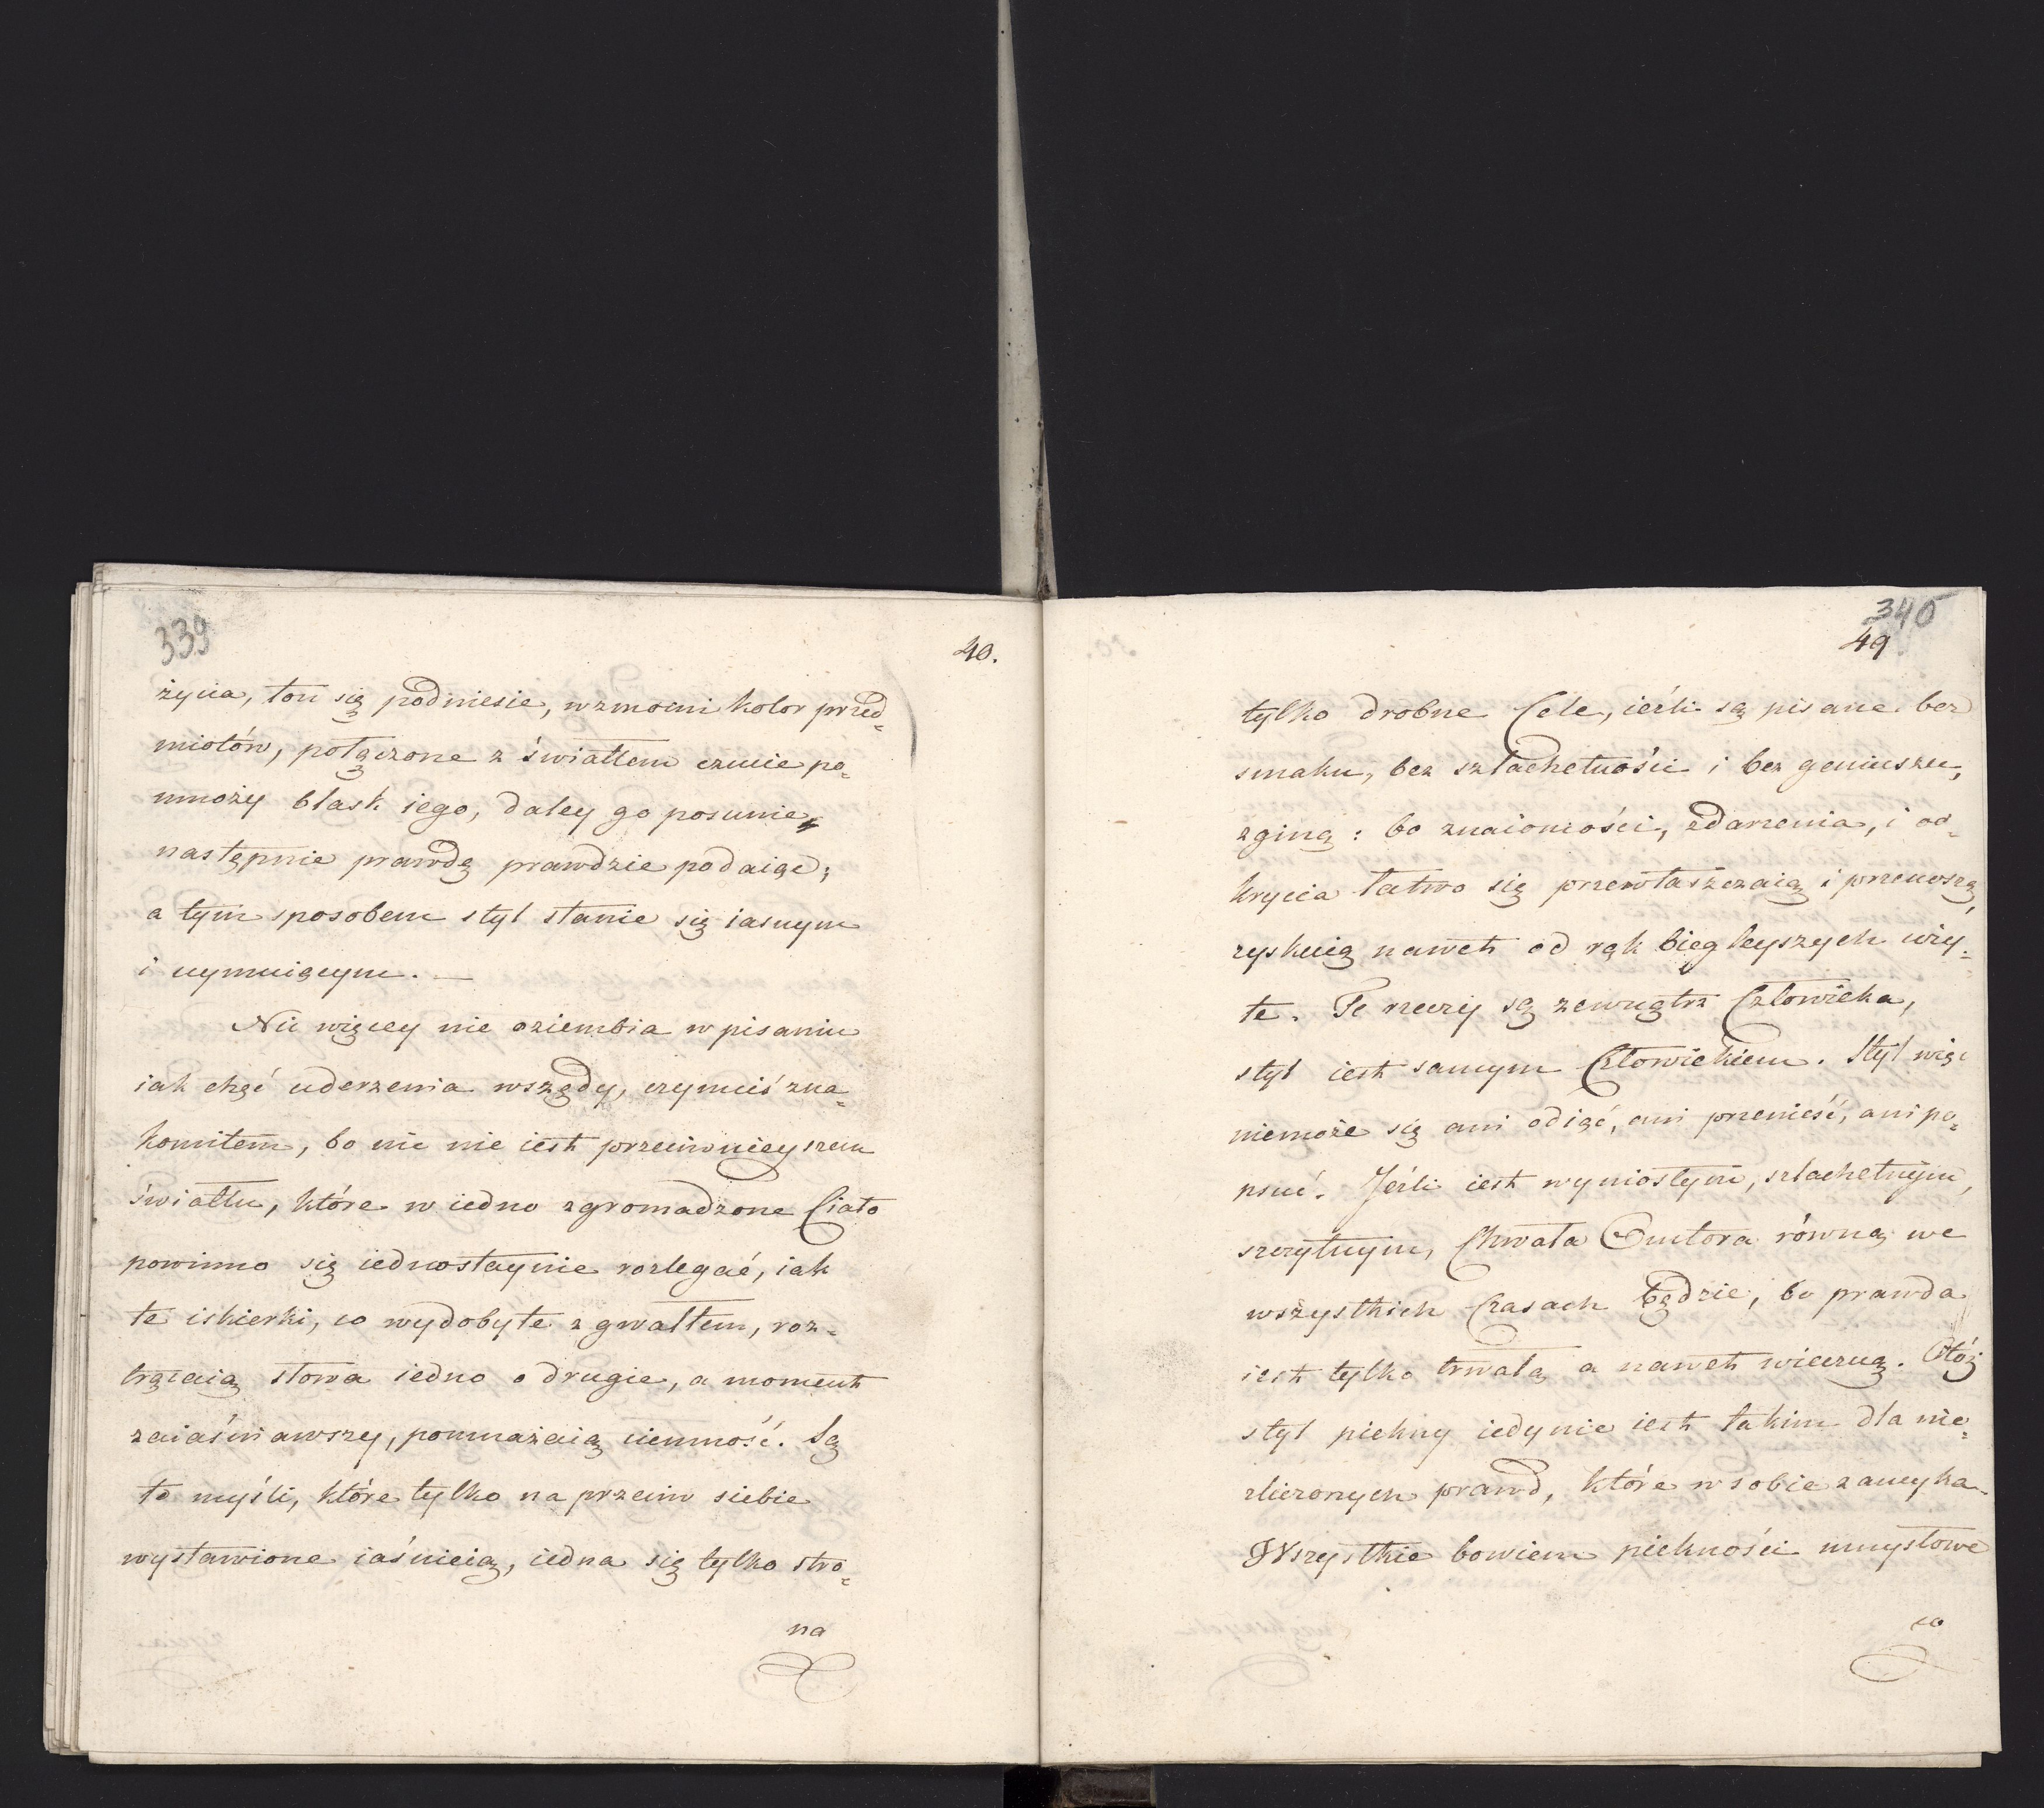 339
40.
życia, ton się podniesie, wzmocni kolor przed=
miotów, połączone z światłem czucie po=
mnoży blask iego, daley go posunie,
następnie prawdę prawdzie podaiąc;
a tym sposobem styl stanie się iasnym
i uymuiącym. —
Nic więcey nie oziembia w pisaniu
iak chęć uderzenia wszędy, czymciś zna=
komitem, bo nic nie iest przeciwnieyszem
światłu, które w iedno zgromadzone Ciało
powinno się iednostaynie rozlegać, iak
te iskierki, co wydobyte z gwałtem, roz=
trącaią słowa iedno o drugie, a moment
zaiaśniawszy, pomnażaią ciemność. Są
to myśli, które tylko na przeciw siebie
wystawione iaśnieią, iedna się tylko stro=
na
340
49
tylko drobne Cele, ieśli są pisane bez
smaku, bez szlachetności i bez geniuszu,
zginą: bo znaiomości, zdarzenia, i od=
krycia łatwo się przewłaszczaią i przenoszą,
zyskuią nawet od rąk biegleyszych uży=
te. Te rzeczy są zewnątrz Człowieka,
styl iest samym Człowiekiem. Styl więc
niemoże się ani odiąć, ani przenieść, ani po=
psuć. Jeśli iest wyniosłym, szlachetnym,
szczytnym, Chwała Autora równą we
wszystkich Czasach będzie, bo prawda
iest tylko trwałą a nawet wieczną. Otóż
styl piękny iedynie iest takim dla nie=
zliczonych prawd, które w sobie zamyka.
Wszystkie bowiem piękności umysłowe
co